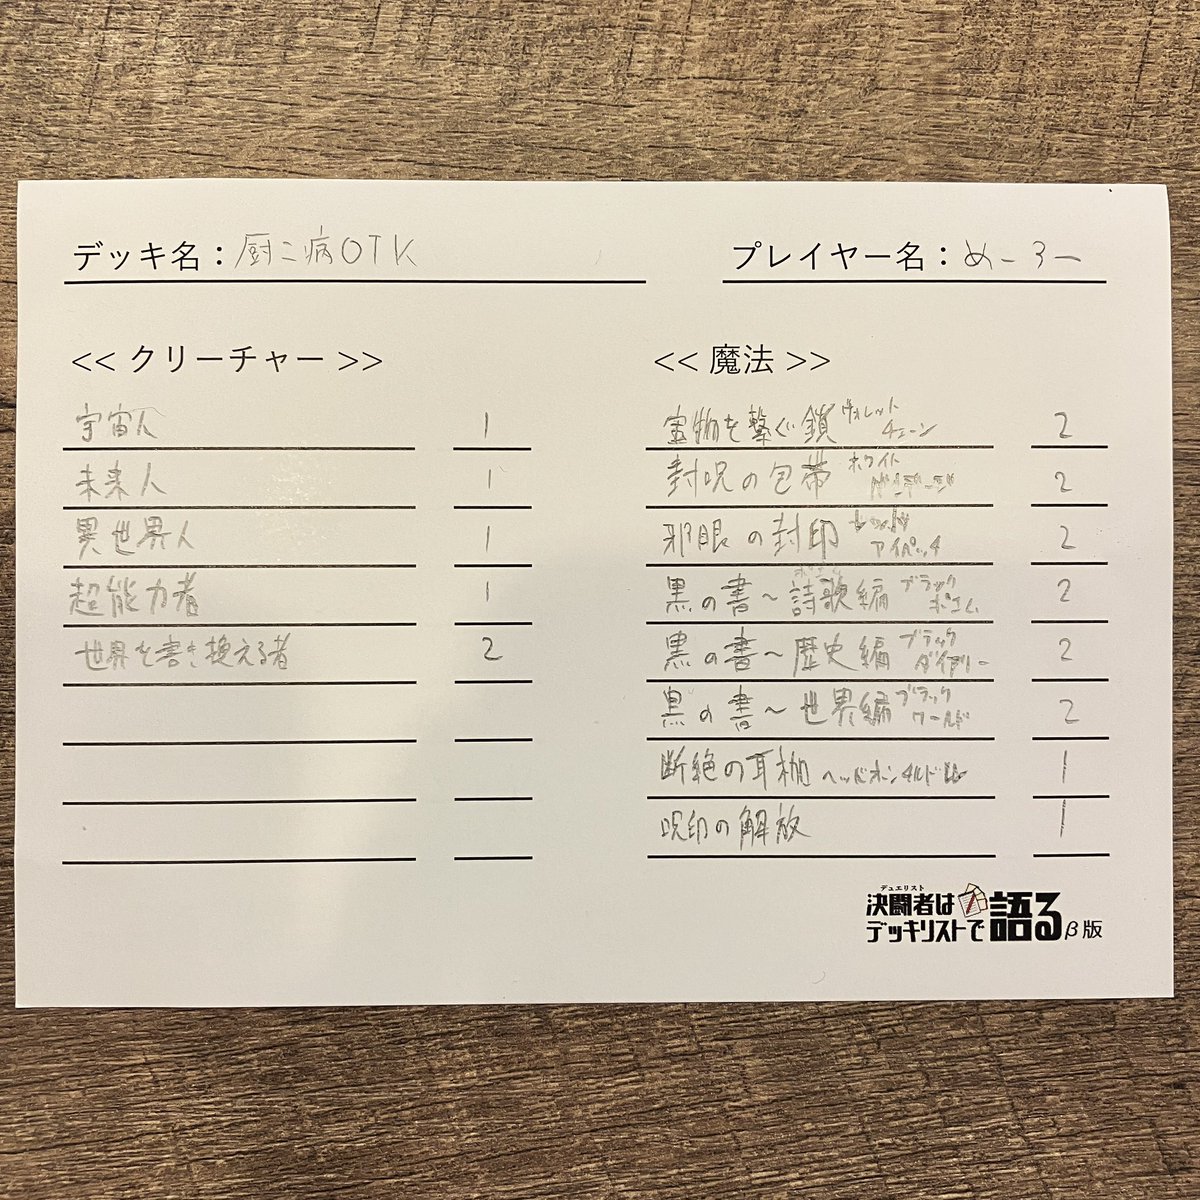 デッキ名：厨二病OTK
プレイヤー名：めーろー
<< クリーチャー >>
宇宙人 1
未来人 1
異世界人 1
超能力者 1
世界を書き換える者 2
<< 魔法 >>
宝物を繋ぐ鎖 ウォレットチェーン 2
封呪の包帯 ホワイトバンデージ 2
邪眼の封印 アイパッチ 2
黒の書～詩歌編 ブラックポエム 2
黒の書～歴史編 ブラックダイアリー 2
黒の書～世界編 ブラックワールド 2
断絶の耳枷 ヘッドホン 1
呪印の解放 1
デュエリスト
決闘者は
デッキリストで語るβ版